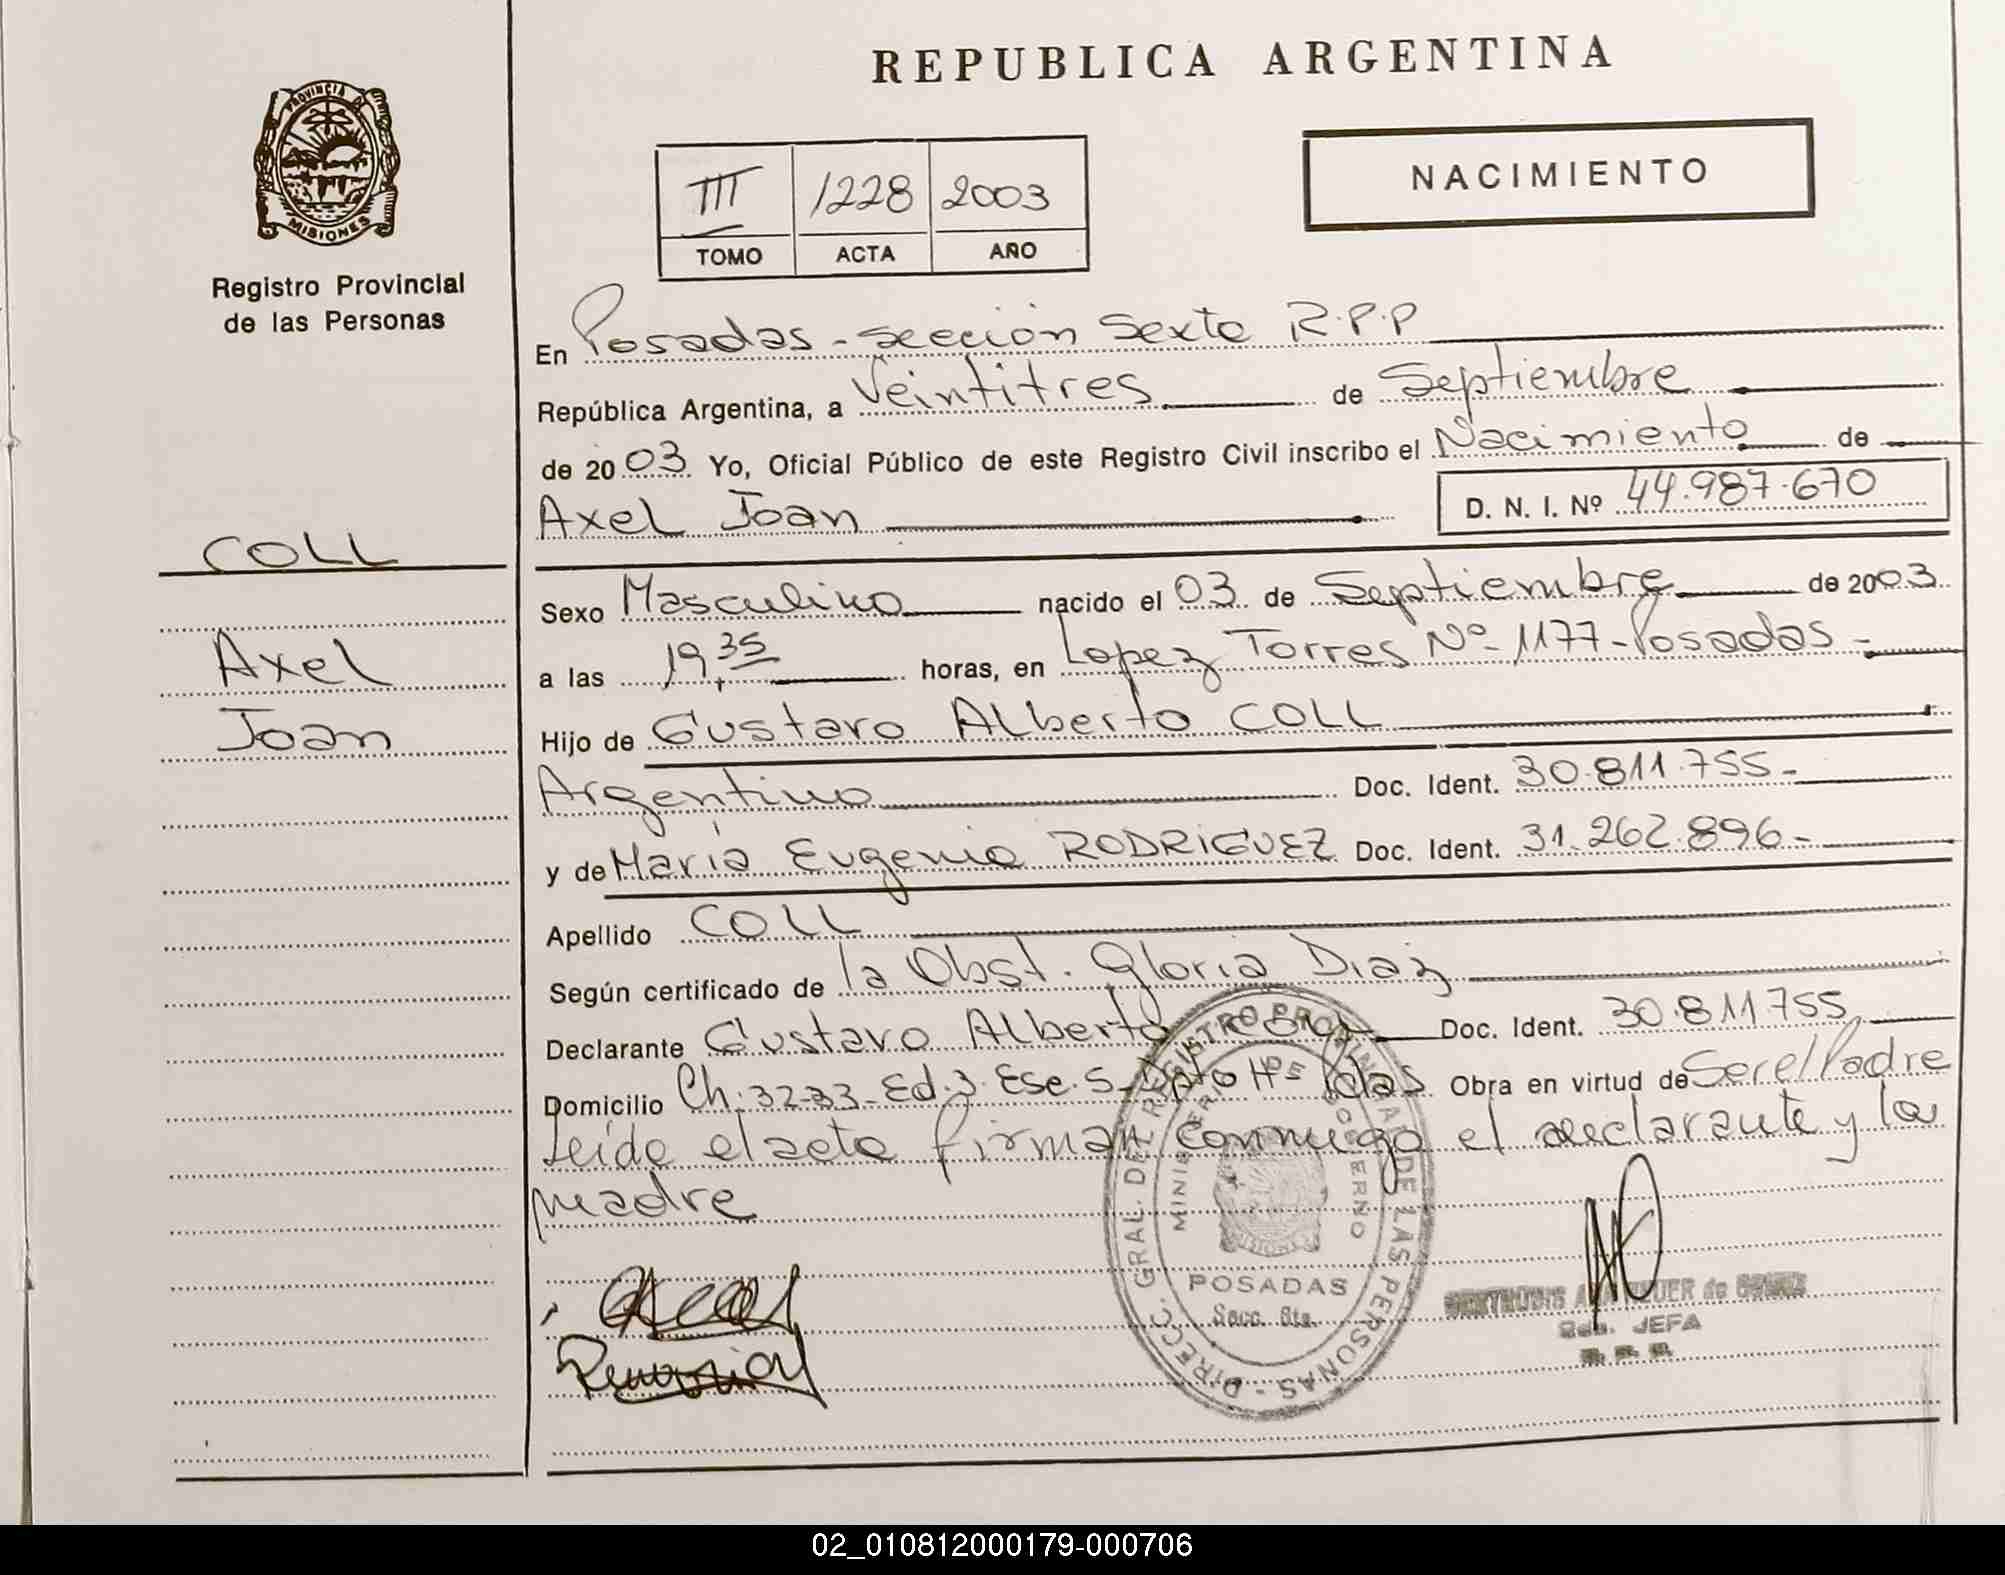 REPUBLICA ARGENTINA
PROVINCIA DE
MISIONES
Registro Provincial
de las Personas
III 1228 2003
TOMO ACTA AÑO
NACIMIENTO
En Posadas - sección Sexta R.P.P
República Argentina, a Veintitres de Septiembre
de 2003 Yo, Oficial Público de este Registro Civil inscribo el Nacimiento de
Axel Joan D. N. I. Nº 44.987.670
COLL
Axel
Joan
Sexo Masculino nacido el 03 de Septiembre de 2003
a las 19,35 horas, en Lopez Torres Nº 1177 - Posadas -
Hijo de Gustavo Alberto COLL
Argentino Doc. Ident. 30.811.755-
y de María Eugenia RODRIGUEZ Doc. Ident. 31.262.896-
Apellido COLL
Según certificado de la Obst. Gloria Diaz
Declarante Gustavo Alberto Doc. Ident. 30.811755
Domicilio Ch. 32-33 - Ed. 3. Esc. 5 - Dpto H - Pdas Obra en virtud de Ser el Padre
Leída el acta firman conmigo el declarante y la
madre
DIRECC. GRAL. DEL REGISTRO PROVINCIAL DE LAS PERSONAS -
MINISTERIO DE GOBIERNO
POSADAS
Secc. 6ta.
JEFA
02_010812000179-000706